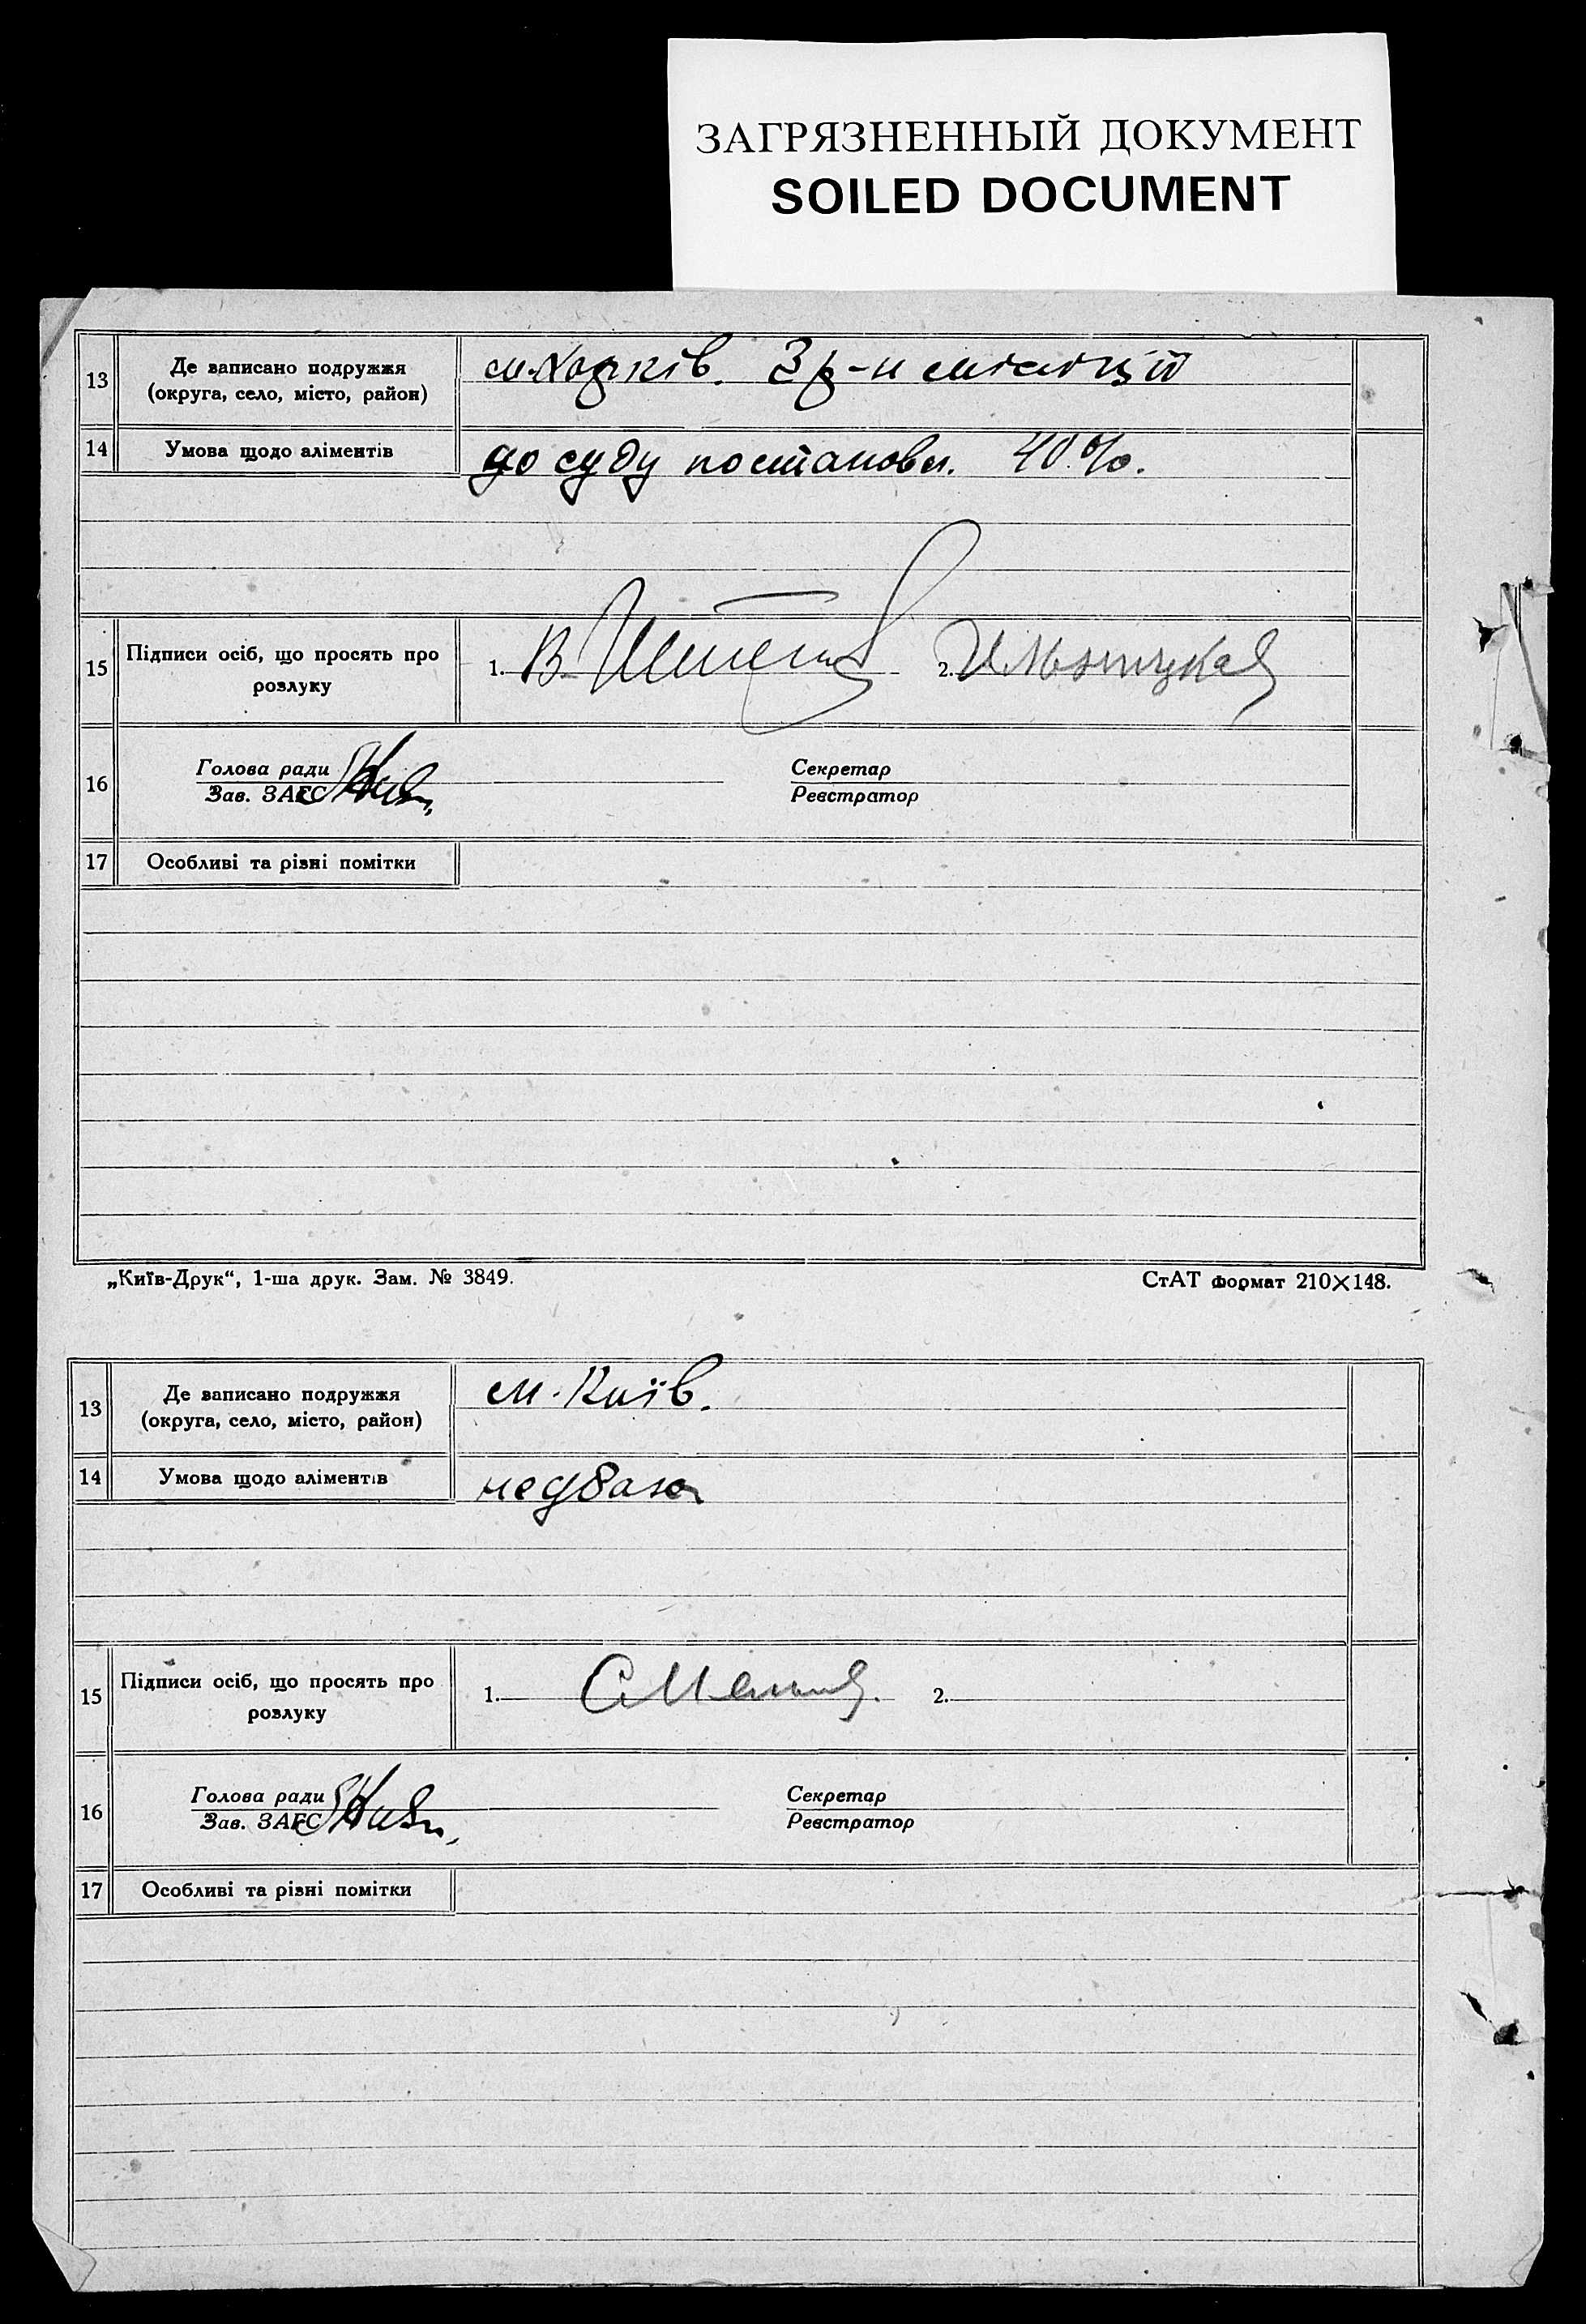 ЗАГРЯЗНЕННЫЙ ДОКУМЕНТ
SOILED DOCUMENT
13
Де записано подружжя
(округа, село, місто, район)
м. Харків. 3 р-н
14
Умова щодо аліментів
до суду постановл. 40%.
15
Підписи осіб, що просять про
розлуку
1.
2.
16
Голова ради
Зав. ЗАГС
Секретар
Реєстратор
17
Особливі та різні помітки
„Київ-Друк“, 1-ша друк. Зам. № 3849.
СтАТ формат 210×148.
13
Де записано подружжя
(округа, село, місто, район)
м. Київ.
14
Умова щодо аліментів
15
Підписи осіб, що просять про
розлуку
1.
2.
16
Голова ради
Зав. ЗАГС
Секретар
Реєстратор
17
Особливі та різні помітки